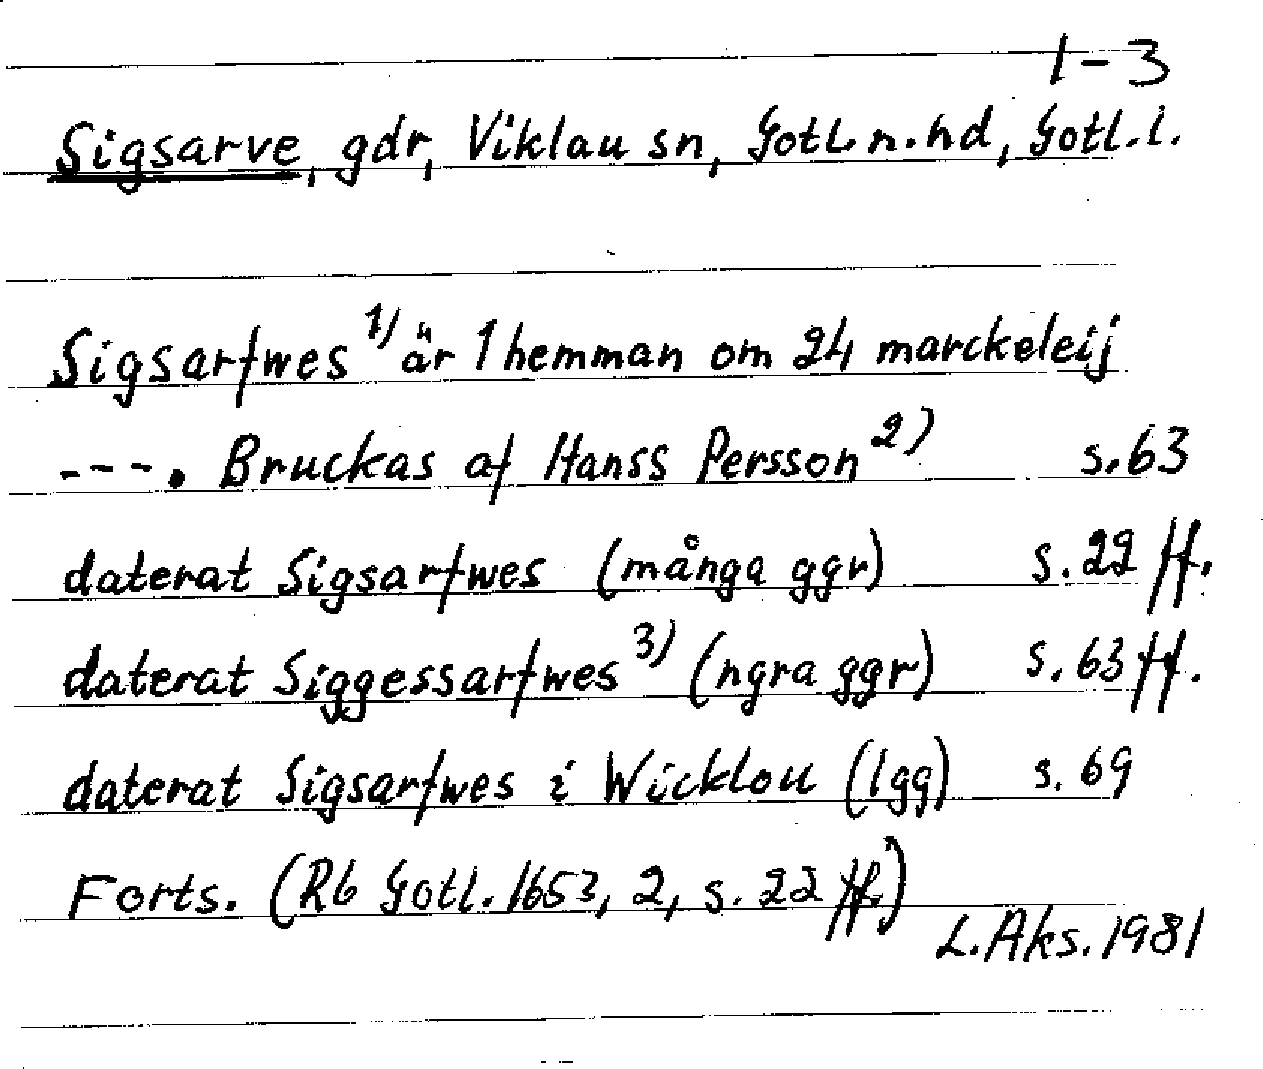 1-3
Sigsarve, gdr, Viklau sn, Gotl. n. hd, Gotl. l.
Sigsarfwes 1) är 1 hemman om 24 marckeleij
---. Bruckas af Hanss Persson 2) s. 63
daterat Sigsarfwes (många ggr) s. 22 ff.
daterat Siggessarfwes 3) (ngra ggr) s. 63 ff.
daterat Sigsarfwes i Wicklou (1gg) s. 69
Forts. (Rb Gotl. 1653, 2, s. 22 ff.)
L. Aks. 1981